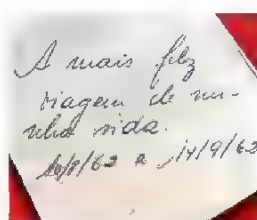 A mais feliz
viagem de mi-
nha vida.
10/8/62 a 14/9/62